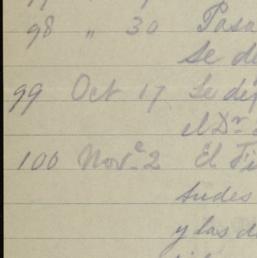 98 " 30 Pasa
se de
99 Oct 17 Se dep
el Dr.
100 Nov.e 2 El Fi
tudes
y las d